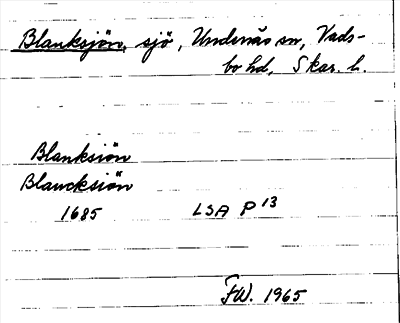 Blanksjön, sjö, Undenäs sn, Vads-
bo hd, Skar. l.
Blanksiön
Blancksiön
1685 LSA P 13
FW. 1965